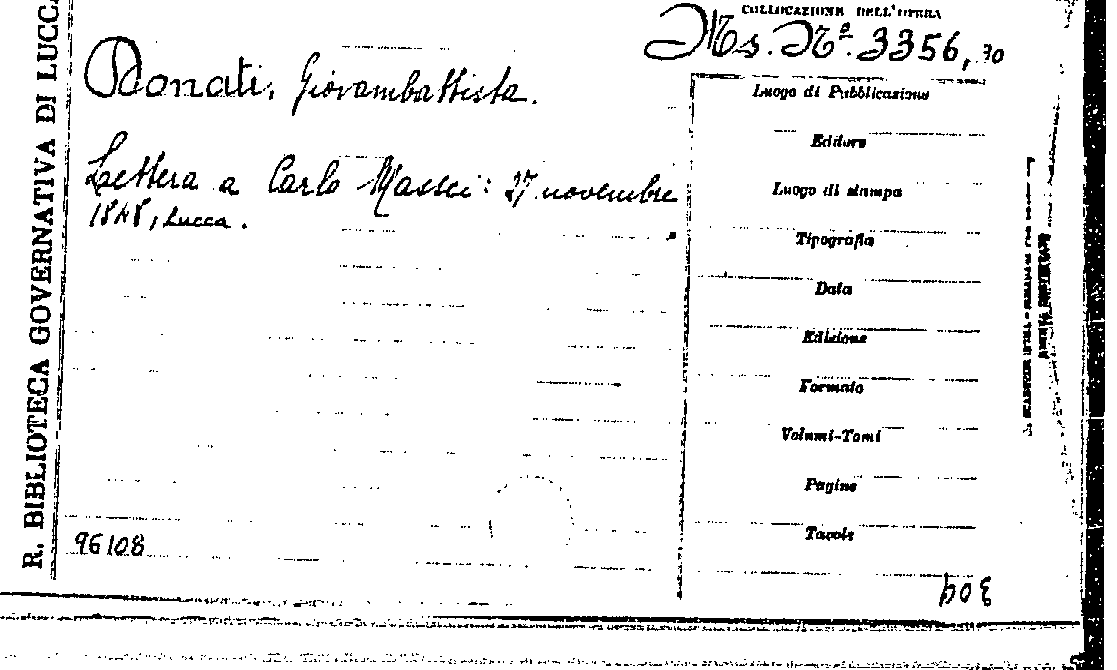 R. BIBLIOTECA GOVERNATIVA DI LUCCA
COLLOCAZIONE DELL'OPERA
Ms. Nº. 3356, 70
Donati, Giovambattista.
Lettera a Carlo Massei: 27 novembre
1848, Lucca.
Luogo di Pubblicazione
Editore
Luogo di stampa
Tipografia
Data
Edizione
Formato
Volumi-Tomi
Pagine
Tavole
96108